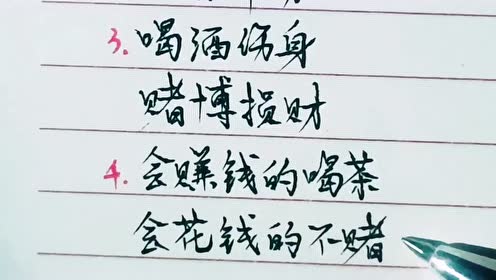 3.喝酒伤身
赌博损财
4.会赚钱的喝茶
会花钱的不赌